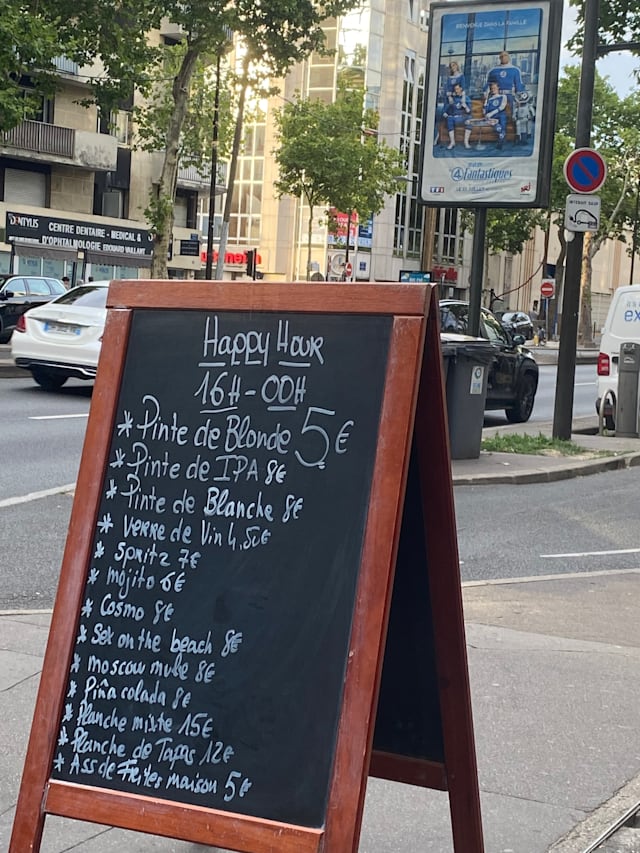 BIENVENUE DANS LA FAMILLE
4 Fantastiques
TF1
NRJ
DENTYLIS
CENTRE DENTAIRE - MEDICAL &
D'OPHTALMOLOGIE EDOUARD VAILLANT
Happy Hour
16H-00H
* Pinte de Blonde 5€
* Pinte de IPA 8€
* Pinte de Blanche 8€
* Verre de Vin 4,50€
* Spritz 7€
* Mojito 6€
* Cosmo 8€
* Sex on the beach 8€
* moscow mule 8€
* Piña colada 8€
* Planche mixte 15€
* Planche de Tapas 12€
* Ass de Frites maison 5€
ex